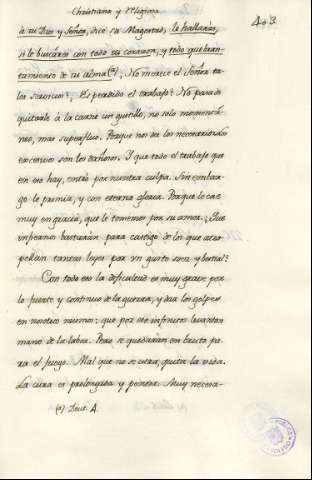 Christiana y Religiosa
403
à tu Dios y Señor, dice su Magestad, le hallarás,
si le buscáres con todo tu corazon, y todo quebran-
tamiento de tu alma(a). No merece el Señor ta-
les servicios? Es perdido el trabajo? No para en
quitarle à la carne un gustillo, no solo momentá-
neo, mas superfluo. Porque nos da los necesarios
excesivos son los dañosos. Y que todo el trabajo que
en eso hay, entró por nuestra culpa. Sin embar-
go le premia, y con eterna gloria. Porque le cae
muy en gracia, que le tomemos por su amor. Que
infiernos bastarán para castigo de los que atro-
pellan tantas leyes por un gusto soez y bestial?
Con todo eso la dificultad es muy grave por
lo fuerte y continuo de la guerra, y dar los golpes
en nosotros mismos: que por eso infinitos levantan
mano de la labor. Pero se quedarán en fruta pa-
ra el fuego. Mal que no se cura, quita la vida.
La cura es prolongada y penosa. Muy necesa-
(a) Deut. 4.